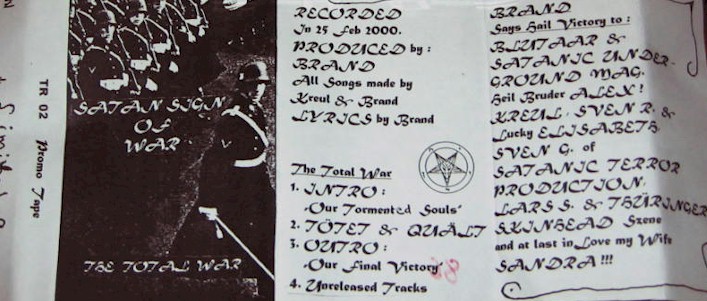 TR 02 Promo Tape
SATAN SIGN
OF
WAR
THE TOTAL WAR
RECORDED
In 25 Feb 2000.
PRODUCED by :
BRAND
All Songs made by
Kreul & Brand
LYRICS by Brand
The Total War
1. INTRO :
„Our Tormented Souls“
2. TÖTET & QUÄLT
3. OUTRO :
„Our Final Victory“
4. Unreleased Tracks
BRAND
Says Hail Victory to :
BLUTAAR &
SATANIC UNDER-
GROUND MAG.
Heil Bruder ALEX !
KREUL, SVEN R. &
Lucky ELISABETH,
SVEN G. of
SATANIC TERROR
PRODUCTION,
LARS S. & THÜRINGER
SKINHEAD Szene
and at last in Love my Wife
SANDRA !!!